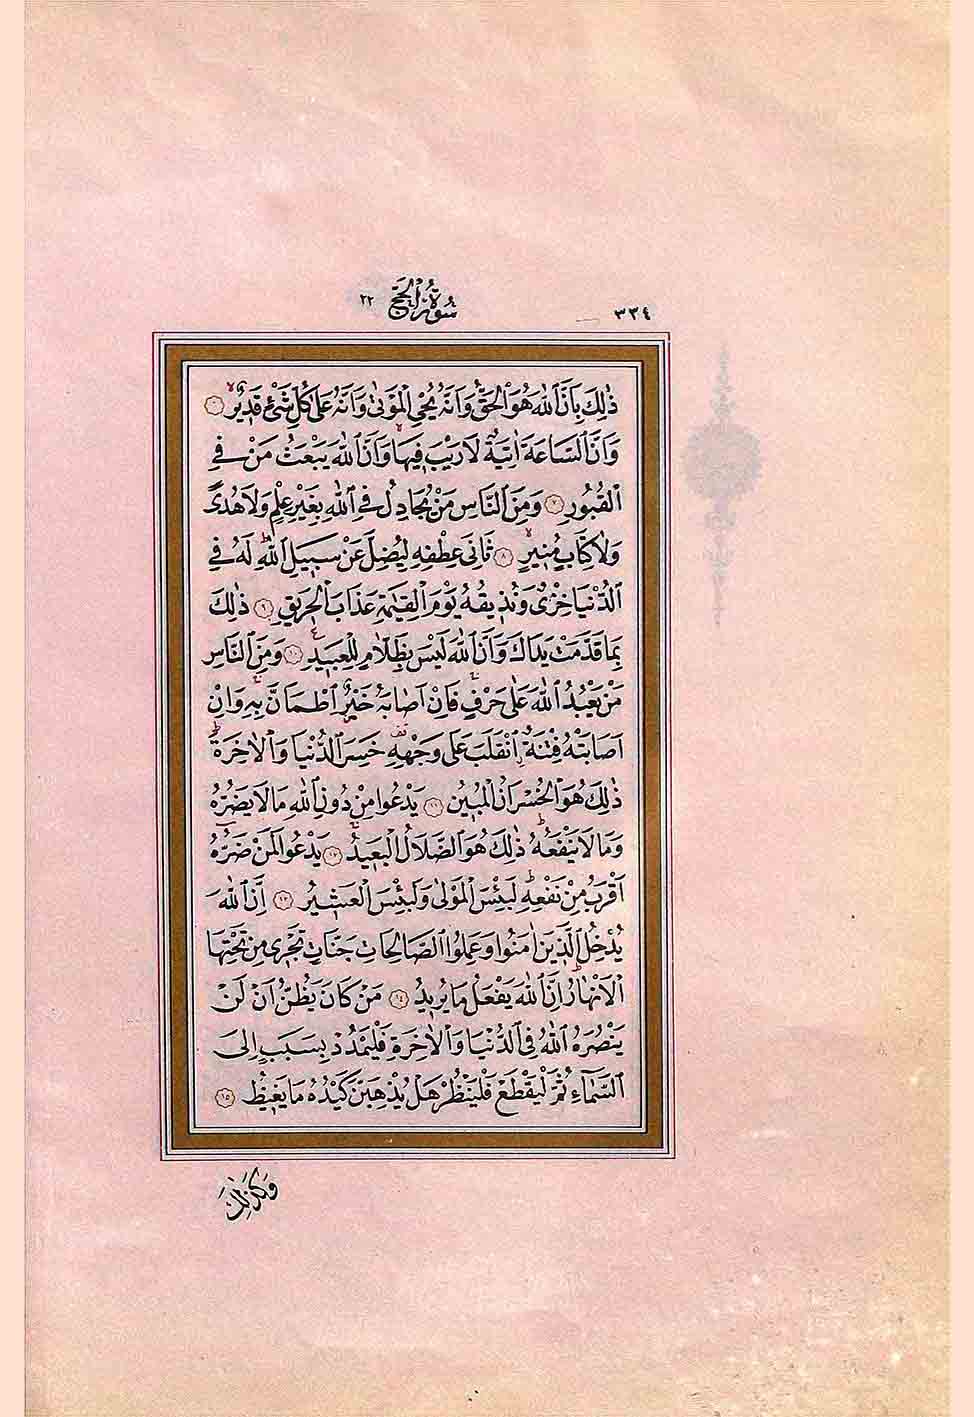 ٣٣٤
سُورَةُ الْحَجِّ ٢٢
ذٰلِكَ بِاَنَّ اللّٰهَ هُوَ الْحَقُّ وَاَنَّهُ يُحْيِ الْمَوْتٰى وَاَنَّهُ عَلٰى كُلِّ شَيْءٍ قَدٖيرٌ ۙ ﴿٦﴾
وَاَنَّ السَّاعَةَ اٰتِيَةٌ لَا رَيْبَ فٖيهَا ۙ وَاَنَّ اللّٰهَ يَبْعَثُ مَنْ فِي
الْقُبُورِ ﴿٧﴾ وَمِنَ النَّاسِ مَنْ يُجَادِلُ فِي اللّٰهِ بِغَيْرِ عِلْمٍ وَلَا هُدًى
وَلَا كِتَابٍ مُنٖيرٍ ۙ ﴿٨﴾ ثَانِيَ عِطْفِهٖ لِيُضِلَّ عَنْ سَبٖيلِ اللّٰهِ ۜ لَهُ فِي
الدُّنْيَا خِزْيٌ وَنُذٖيقُهُ يَوْمَ الْقِيٰمَةِ عَذَابَ الْحَرٖيقِ ﴿٩﴾ ذٰلِكَ
بِمَا قَدَّمَتْ يَدَاكَ وَاَنَّ اللّٰهَ لَيْسَ بِظَلَّامٍ لِلْعَبٖيدِ ﴿١٠﴾ وَمِنَ النَّاسِ
مَنْ يَعْبُدُ اللّٰهَ عَلٰى حَرْفٍ ۚ فَاِنْ اَصَابَهُ خَيْرٌ اِطْمَاَنَّ بِهٖ ۚ وَاِنْ
اَصَابَتْهُ فِتْنَةٌ اِنْقَلَبَ عَلٰى وَجْهِهٖ خَسِرَ الدُّنْيَا وَالْاٰخِرَةَ ۜ
ذٰلِكَ هُوَ الْخُسْرَانُ الْمُبٖينُ ﴿١١﴾ يَدْعُوا مِنْ دُونِ اللّٰهِ مَا لَا يَضُرُّهُ
وَمَا لَا يَنْفَعُهُ ۜ ذٰلِكَ هُوَ الضَّلَالُ الْبَعٖيدُ ۚ ﴿١٢﴾ يَدْعُوا لَمَنْ ضَرُّهُ
اَقْرَبُ مِنْ نَفْعِهٖ ۜ لَبِئْسَ الْمَوْلٰى وَلَبِئْسَ الْعَشٖيرُ ﴿١٣﴾ اِنَّ اللّٰهَ
يُدْخِلُ الَّذٖينَ اٰمَنُوا وَعَمِلُوا الصَّالِحَاتِ جَنَّاتٍ تَجْرٖي مِنْ تَحْتِهَا
الْاَنْهَارُ ۜ اِنَّ اللّٰهَ يَفْعَلُ مَا يُرٖيدُ ﴿١٤﴾ مَنْ كَانَ يَظُنُّ اَنْ لَنْ
يَنْصُرَهُ اللّٰهُ فِي الدُّنْيَا وَالْاٰخِرَةِ فَلْيَمْدُدْ بِسَبَبٍ اِلَى
السَّمَٓاءِ ثُمَّ لْيَقْطَعْ فَلْيَنْظُرْ هَلْ يُذْهِبَنَّ كَيْدُهُ مَا يَغٖيظُ ﴿١٥﴾
وَكَذٰلِكَ